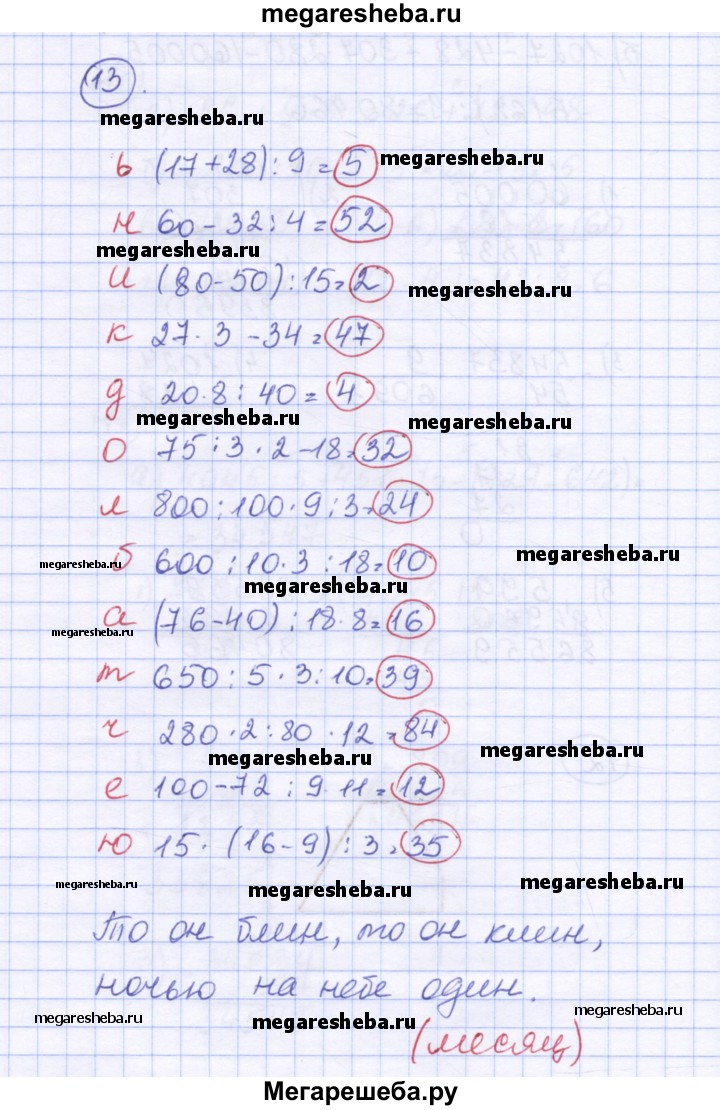 megaresheba.ru
13.
megaresheba.ru
ь (17+28):9=5
megaresheba.ru
н 60-32:4=52
megaresheba.ru
и (80-50):15=2
megaresheba.ru
к 27·3-34=47
д 20·8:40=4
megaresheba.ru
megaresheba.ru
о 75:3·2-18=32
л 800:100·9:3=24
megaresheba.ru
б 600:10·3:18=10
megaresheba.ru
megaresheba.ru
а (76-40):18·8=16
megaresheba.ru
т 650:5·3:10=39
ч 280·2:80·12=84
megaresheba.ru
megaresheba.ru
е 100-72:9·11=12
ю 15·(16-9):3=35
megaresheba.ru
megaresheba.ru
megaresheba.ru
То он блин, то он клин,
ночью на небе один.
megaresheba.ru
megaresheba.ru
megaresheba.ru
(месяц)
Мегарешеба.ру